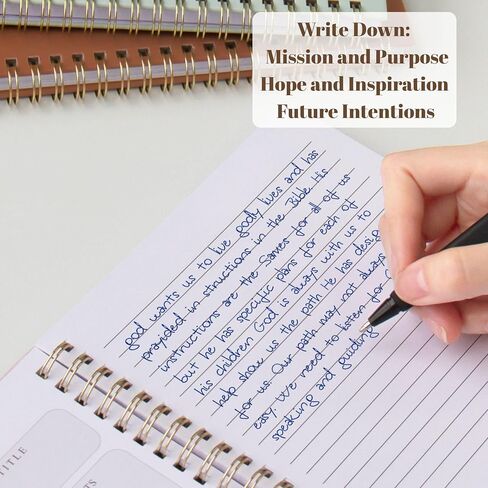 Write Down:
Mission and Purpose
Hope and Inspiration
Future Intentions
God wants us to live godly lives and has
provided instructions in the Bible. His
instructions are the Sames for all of us
but he has specific plans for each of
his children God is always with us to
help show us the path He has desig
for us. Our path may not always
easy. We need to listen for
speaking and guiding
TITLE